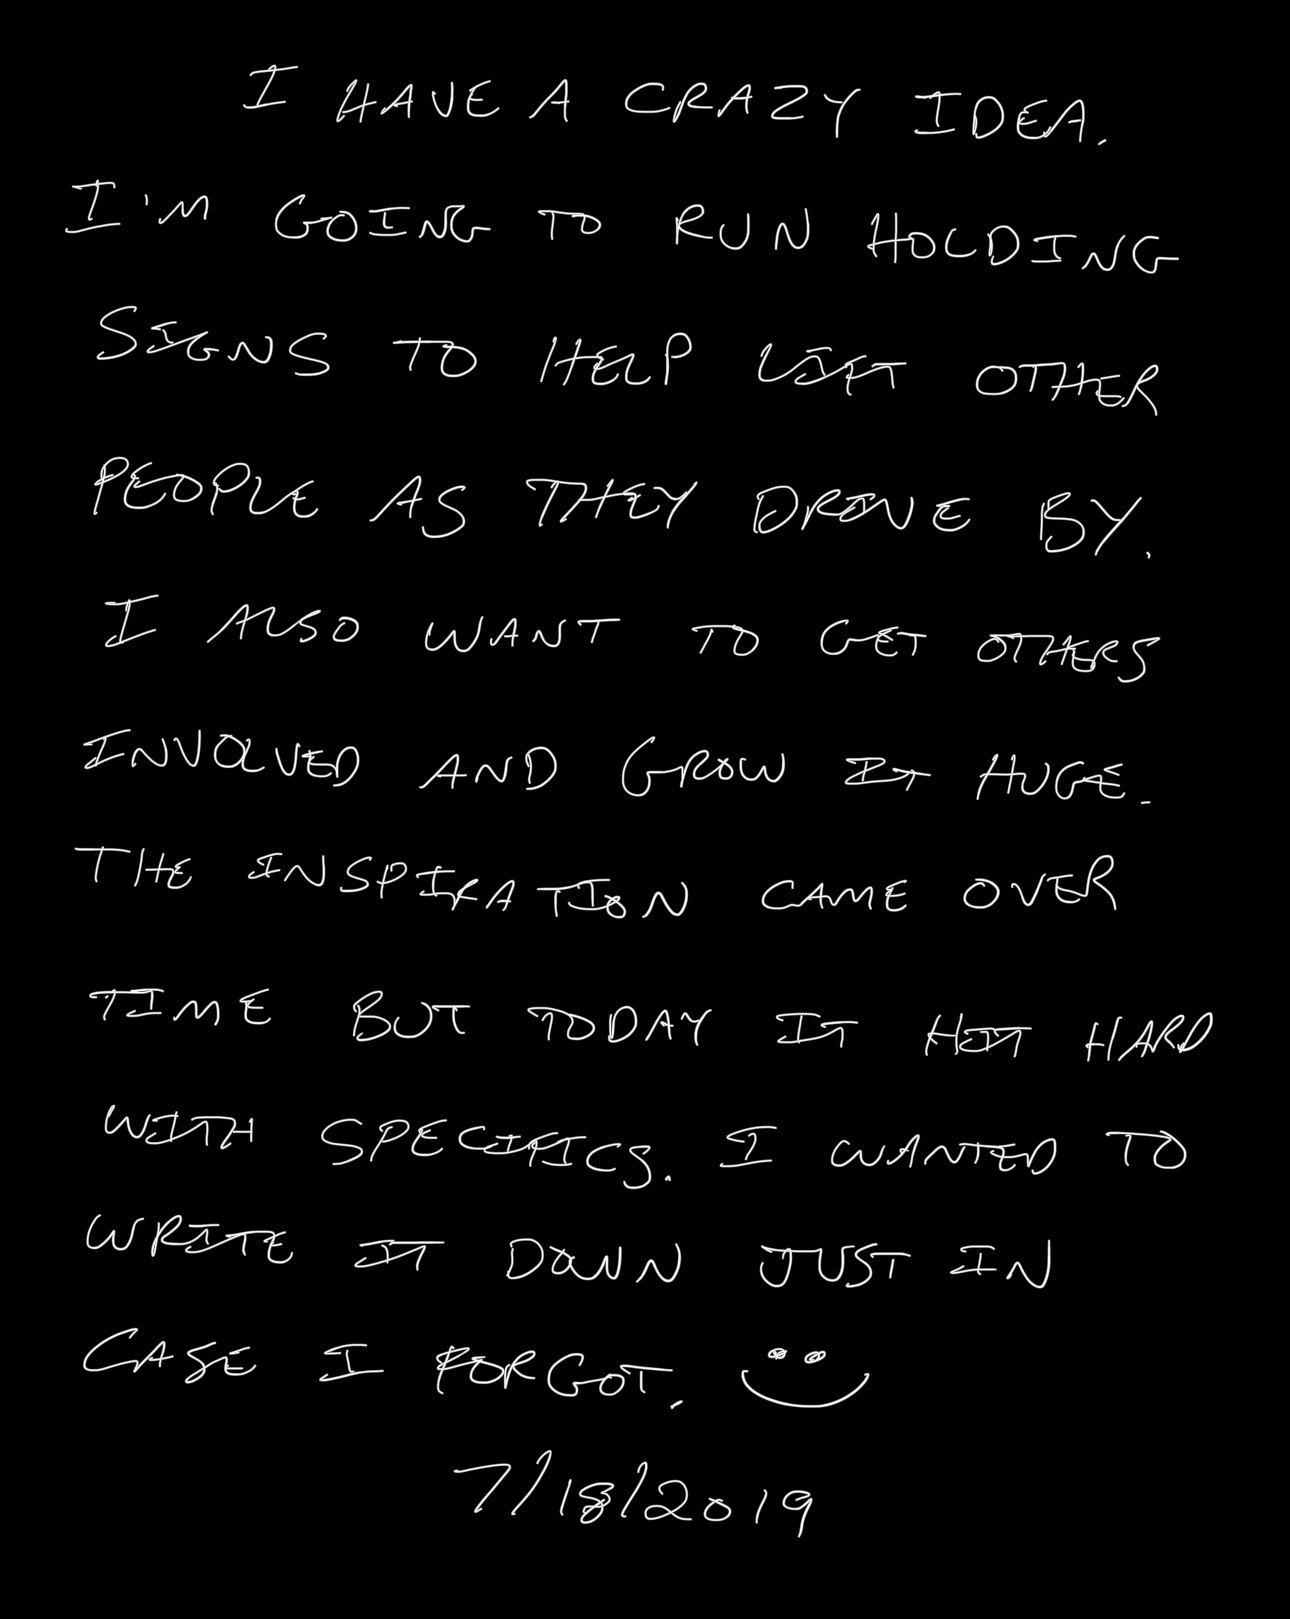 I HAVE A CRAZY IDEA.
I'M GOING TO RUN HOLDING
SIGNS TO HELP LIFT OTHER
PEOPLE AS THEY DRIVE BY.
I ALSO WANT TO GET OTHERS
INVOLVED AND GROW IT HUGE.
THE INSPIRATION CAME OVER
TIME BUT TODAY IT HIT HARD
WITH SPECIFICS. I WANTED TO
WRITE IT DOWN JUST IN
CASE I FORGOT.
7/18/2019